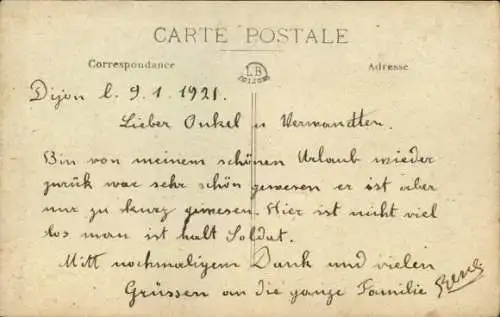 CARTE POSTALE
Correspondance
LB
DIJON
Adresse
Dijon l. 9.1.1921.
Lieber Onkel u Verwandten.
Bin von meinem schönen Urlaub wieder
zurük war sehr schön gewesen er ist aber
nur zu kurz gewesen. Hier ist nicht viel
los man ist halt Soldat.
Mitt nochmaligem Dank und vielen
Grüssen an die ganze Familie René